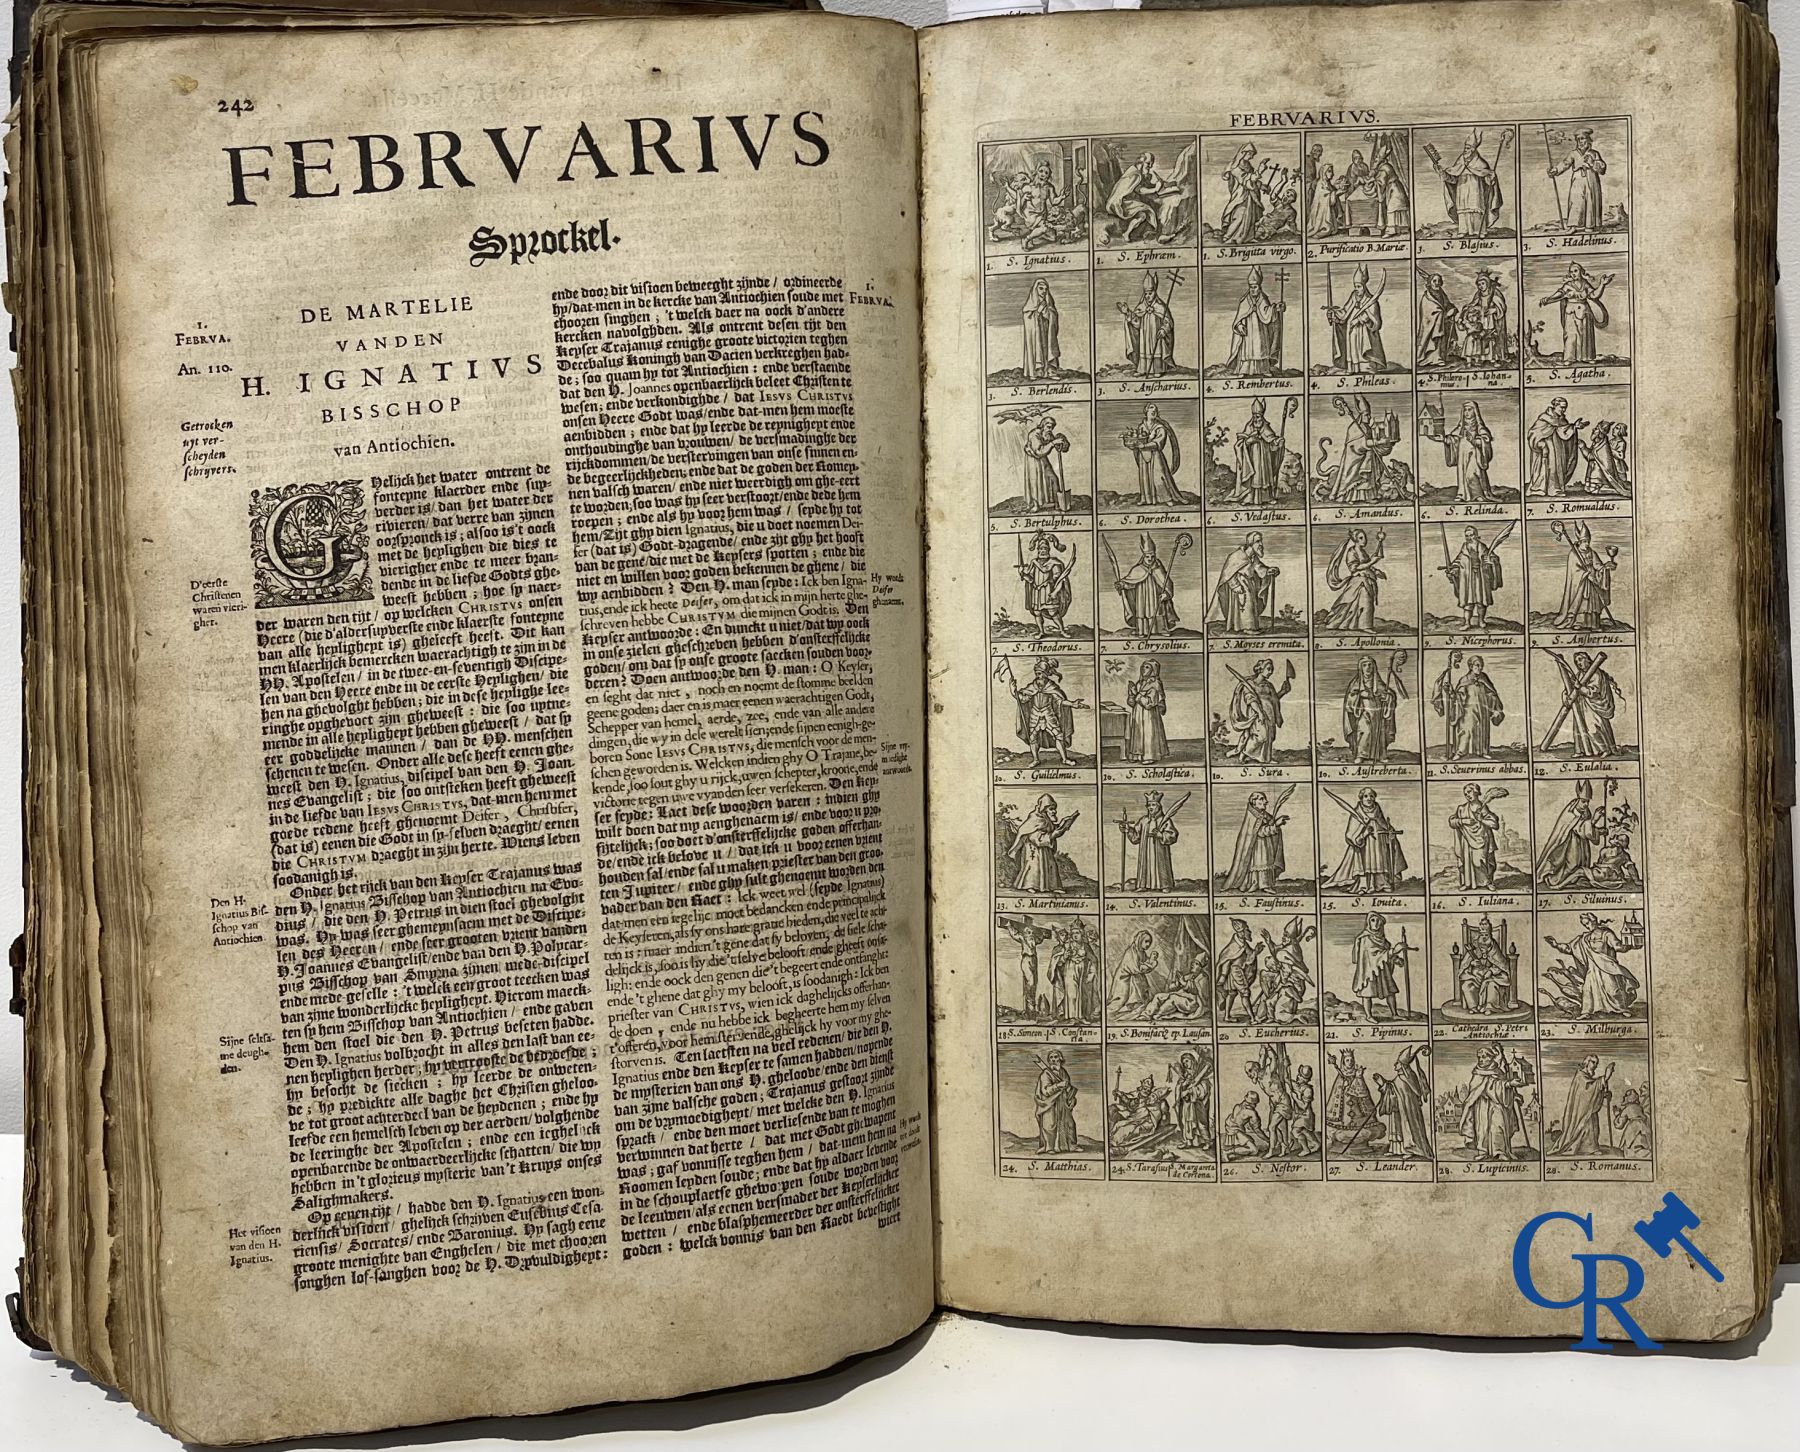 242
FEBRVARIVS
Sprockel.
1.
FEBRVA.
An. 110.
Getrocken
uyt ver-
scheyden
schrijvers.
DE MARTELIE
VANDEN
H. IGNATIVS
BISSCHOP
van Antiochien.
GHelijck het water ontrent de
fonteyne klaerder ende suy-
verder is/ dan het water der
rivieren/ dat verre van zijnen
oorspronck is; alsoo is't oock
met de heylighen die dies te
vierigher ende te meer bran-
dende in de liefde Godts ghe-
weest hebben; hoe sy naer-
der waren den tijt/ op welcken CHRISTVS onsen
Heere (die d'aldersupverste ende klaerste fonteyne
van alle heyligheyt is) gheleeft heeft. Dit kan
men klaerlijck bemercken waerachtigh te zijn in de
HH. Apostelen/ in de twee-en-seventigh Discipe-
len van den Heere ende in de eerste Heylighen/ die
hen na ghevolght hebben; die in dese heylighe lee-
ringhe opghevoet zijn gheweest: die soo uytne-
mende in alle heyligheyt hebben gheweest/ dat sy
eer goddelijcke mannen/ dan de HH. menschen
schenen te wesen. Onder alle dese heeft eenen ghe-
weest den H. Ignatius, discipel van den H. Joan-
nes Evangelist; die soo ontsteken heeft gheweest
in de liefde van IESVS CHRISTVS, dat-men hem met
goede redene heeft ghenoemt Deifer, Christifer,
(dat is) eenen die Godt in sy-selven draeght/ eenen
die CHRISTVM draeght in zijn herte. Wiens leven
soodanigh is.
Onder het rijck van den Keyser Trajanus was
den H. Ignatius Bisschop van Antiochien na Evo-
dius/ die den H. Petrus in dien stoel ghevolght
was. Hy was seer ghemeynsaem met de Discipe-
len des Heeren/ ende seer grooten vrient vanden
H. Joannes Evangelist/ ende van den H. Polycar-
pus Bisschop van Smyrna zijnen mede-discipel
ende mede geselle: 't welck een groot teecken was
van zijne wonderlijcke heyligheyt. Hierom maeck-
ten sy hem Bisschop van Antiochien/ ende gaven
hem den stoel die den H. Petrus beseten hadde.
Den H. Ignatius volbrocht in alles den last van ee-
nen heylighen herder; hy vertrooste de bedroefde;
hy besocht de siecken; hy leerde de onweten-
de; hy predickte alle daghe het Christen gheloo-
ve tot groot achterdeel van de heydenen; ende hy
leefde een hemelsch leven op der aerden/ volghende
de leeringhe der Apostelen; ende een ieghelijck
openbarende de onwaerdeerlijcke schatten/ die wy
hebben in 't glorieus mysterie van't Kruys onses
Salighmakers.
Op eenen tijt/ hadde den H. Ignatius een won-
derlijck visioen/ ghelijck schrijven Eusebius Cesa-
riensis/ Socrates/ ende Baronius. Hy sagh eene
groote menighte van Enghelen/ die met chooren
songhen lof-sanghen voor de H. Dryvuldigheyt:
D'eerste
Christenen
waren vieri-
gher.
Den H.
Ignatius Bis-
schop van
Antiochien.
Sijne seltsa-
me deugh-
den.
Het visioen
van den H.
Ignatius.
ende door dit visioen beweeght zijnde/ ordineerde
hy/dat-men in de kercke van Antiochien soude met
chooren singhen; 't welck daer na oock d'andere
kercken navolghden. Als ontrent desen tijt den
Keyser Trajanus eenighe groote victorien teghen
Decebalus Koningh van Dacien verkreghen had-
de; soo quam hy tot Antiochien: ende verstaende
dat den H. Joannes openbaerlijck beleet Christen te
wesen; ende verkondighde/ dat IESVS CHRISTVS
onsen Heere Godt was/ende dat-men hem moeste
aenbidden; ende dat hy leerde de reynigheyt ende
onthoudinghe van vrouwen/ de versmadinghe der
rijckdommen/de verstervingen van onse sinnen en-
de begeerlijckheden; ende dat de goden der Romey-
nen valsch waren/ ende niet weerdigh om ghe-eert
te worden; soo was hy seer verstoort/ende dede hem
roepen; ende als hy voor hem was/ seyde hy tot
hem/Zijt ghy dien Ignatius, die u doet noemen Dei-
fer (dat is) Godt-dragende/ ende zijt ghy het hooft
van de gene/die met de Keysers spotten; ende die
niet en willen voor goden bekennen de ghene/ die
wy aenbidden? Den H. man seyde: Ick ben Igna-
tius,ende ick heete Deifer, om dat ick in mijn herte ghe-
schreven hebbe CHRISTVM die mijnen Godt is. Den
Keyser antwoorde: En dunckt u niet/dat wy oock
in onse zielen gheschreven hebben d'onsterffelijcke
goden/ om dat sy onse groote saecken souden voor-
deren? Doen antwoorde den H. man: O Keyser,
en seght dat niet, noch en noemt de stomme beelden
geene goden; daer en is maer eenen waerachtigen Godt,
Schepper van hemel, aerde, zee, ende van alle andere
dingen, die wy in dese werelt sien;ende sijnen eenigh-ge-
boren Sone IESVS CHRISTVS, die mensch voor de men-
schen geworden is. Welcken indien ghy O Trajane,be-
kende, soo sout ghy u rijck, uwen schepter, kroone, ende
victorie tegen uwe vyanden seer versekeren. Den Key-
ser seyde: Laet dese woorden varen: indien ghy
wilt doen dat my aenghenaem is/ ende voor u pro-
fijtelijck; soo doet d'onsterffelijcke goden offerhan-
de/ ende ick belove u/ dat ick u voor eenen vrient
houden sal/ende sal u maken priester van den groo-
ten Jupiter/ ende ghy sult ghenoemt worden den
vader van den Raet: Ick weet wel (seyde Ignatius)
dat-men een iegelijc moet bedancken ende principalijck
de Keyseren,als sy ons hare gratie bieden, die veel te ach-
ten is: maer indien 't gene dat sy beloven, de siele scha-
delijck is, soo is hy die 't selve belooft ende gheeft onsa-
ligh: ende oock den genen die't begeert ende ontfanght:
ende 't ghene dat ghy my belooft, is soodanigh: Ick ben
priester van CHRISTVS, wien ick daghelijcks offerhan-
de doen, ende nu hebbe ick begheerte hem my selven
t'offeren,voor hem stervende,ghelijck hy voor my ghe-
storven is. Ten laetsten na veel redenen/ die den H.
Ignatius ende den Keyser te samen hadden/nopende
de mysterien van ons H. gheloove/ende den dienst
van zijne valsche goden; Trajanus gestoort zijnde
om de vrymoedigheyt/ met welcke den H. Ignatius
sprack/ ende den moet verliesende van te moghen
verwinnen dat herte/ dat met Godt ghewapent
was; gaf vonnisse teghen hem/ dat-men hem na
Roomen leyden soude; ende dat hy aldaer levende
in de schouplaetse gheworpen soude worden voor
de leeuwen/als eenen versmader der Keyserlijcker
wetten/ ende blasphemeerder der onsterffelijcker
goden: welck vonnis van den Raedt bevestight
wiert
1.
FEBRVA.
Hy wordt
Deifer
ghenaemt.
Sijne vry-
moedighe
antwoorde.
FEBRVARIVS.
1. S. Ignatius. 1. S. Ephræm. 1. S. Brigitta virgo. 2. Purificatio B. Mariæ. 3. S. Blasius. 3. S. Hadelinus.
3. S. Berlendis. 3. S. Anscharius. 4. S. Rembertus. 4. S. Phileas. 4. S. Philoro-mus. S. Iohan-na 5. S. Agatha.
5. S. Bertulphus. 6. S. Dorothea. 6. S. Vedastus. 6. S. Amandus. 6. S. Relinda. 7. S. Romualdus.
7. S. Theodorus. 7. S. Chrysolius. 7. S. Moyses eremita. 8. S. Apollonia. 9. S. Nicephorus. 9. S. Ansbertus.
10. S. Guilielmus. 10. S. Scholastica. 10. S. Sura. 10. S. Austreberta. 11. S. Severinus abbas. 12. S. Eulalia.
13. S. Martinianus. 14. S. Valentinus. 15. S. Faustinus. 15. S. Iovita. 16. S. Iuliana. 17. S. Silvinus.
18. S. Simeon. S. Constan-tia. 19. S. Bonifaciᵘ ep. Lausan. 20 S. Eucherius. 21. S. Pipinus. 22. Cathedra S. Petri Antiochiæ. 23. S. Milburga.
24. S. Matthias. 24. S. Tarasius. S. Margareta de Cortona. 26. S. Nestor. 27. S. Leander. 28. S. Lupicinus. 28. S. Romanus.
GR